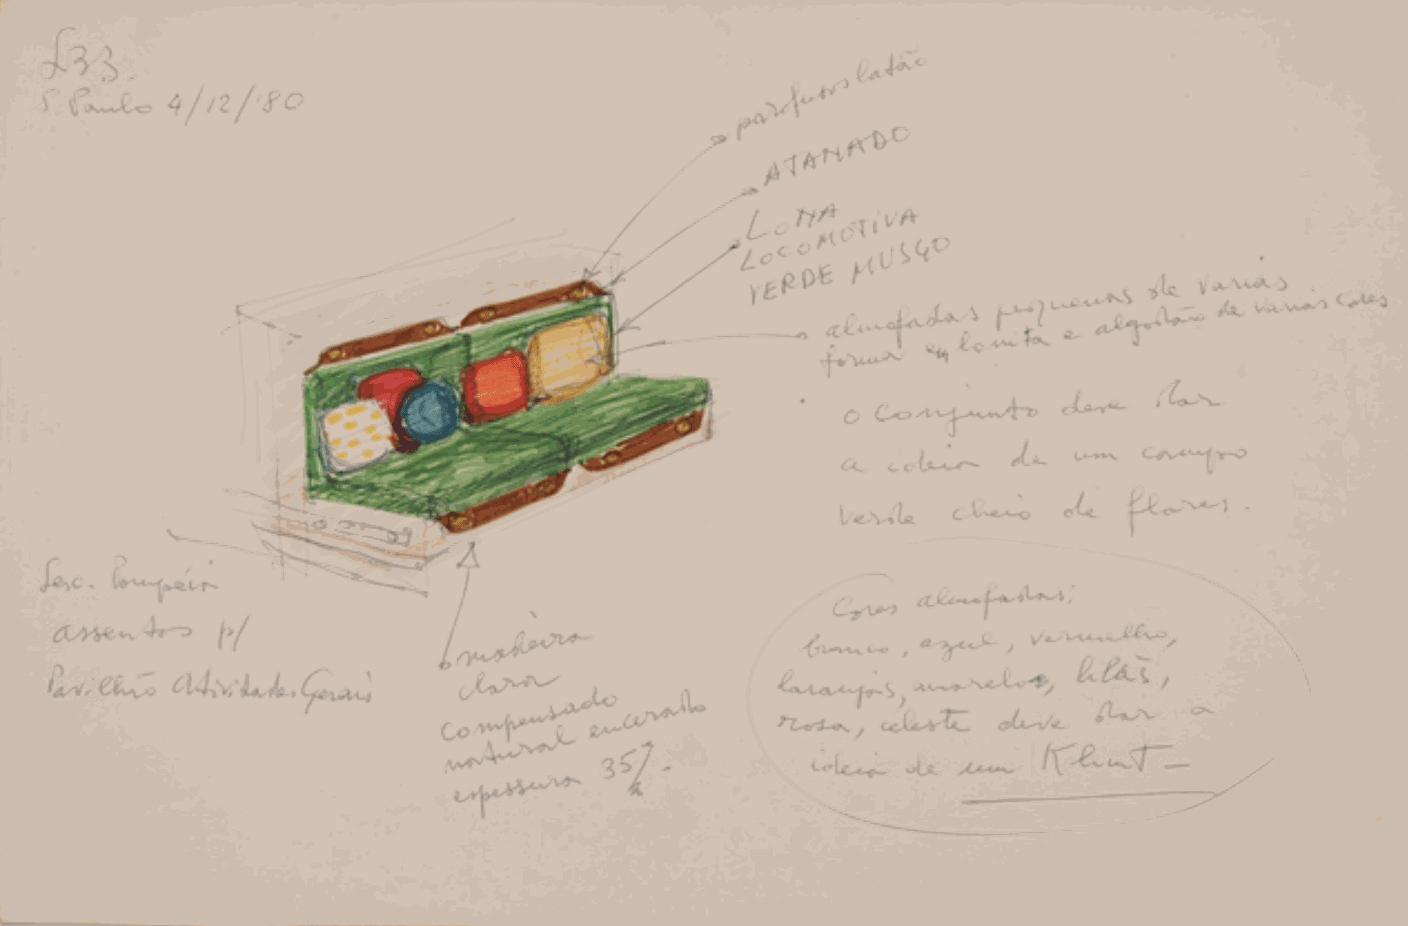 LBB.
S. Paulo 4/12/80
parafusos latão
ATANADO
LONA
LOCOMOTIVA
VERDE MUSGO
almofadas pequenas de varias
forma em lonita e algodão de varias cores
o conjunto deve dar
a ideia de um campo
verde cheio de flores.
Sesc. Pompéia
assentos p/
Pavilhão Atividades Gerais
madeira
clara
compensado
natural encerado
espessura 35
Cores almofadas:
branco, azul, vermelho,
laranja, amarelo, lilás,
rosa, celeste deve dar a
ideia de um Klimt